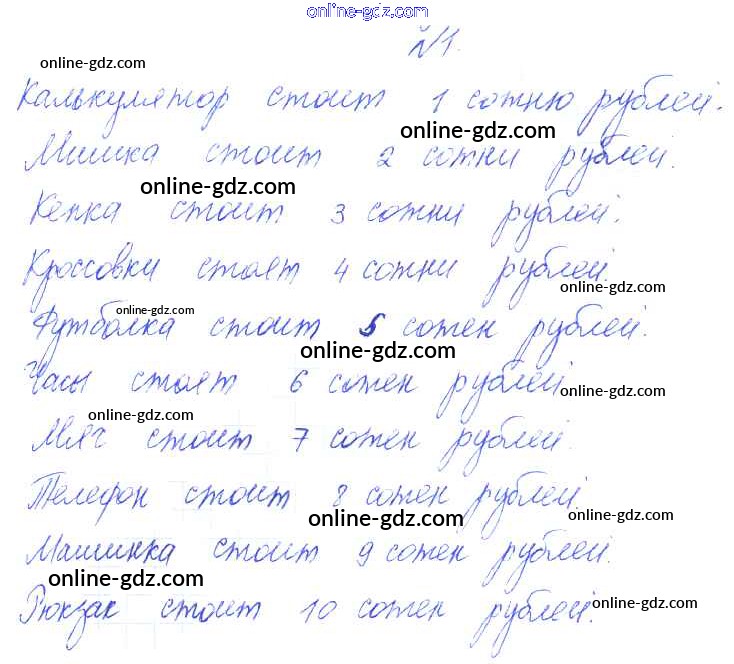 online-gdz.com
№1.
online-gdz.com
Калькулятор стоит 1 сотню рублей.
online-gdz.com
Мишка стоит 2 сотни рублей.
online-gdz.com
Кепка стоит 3 сотни рублей.
Кроссовки стоят 4 сотни рублей.
online-gdz.com
online-gdz.com
Футболка стоит 5 сотен рублей.
online-gdz.com
Часы стоят 6 сотен рублей
online-gdz.com
online-gdz.com
Мяч стоит 7 сотен рублей.
Телефон стоит 8 сотен рублей
online-gdz.com
Машинка стоит 9 сотен рублей.
online-gdz.com
Рюкзак стоит 10 сотен рублей.
online-gdz.com